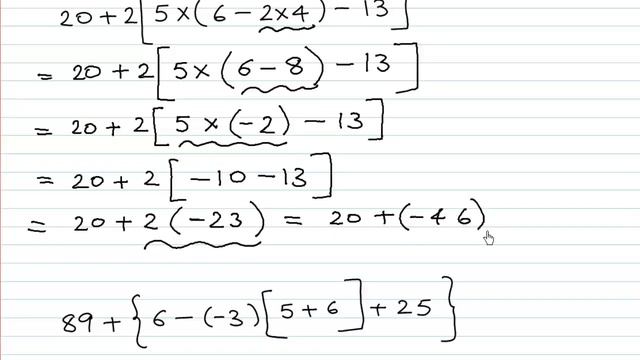 20 + 2 [ 5 × ( 6 - 2 × 4 ) - 13 ]
= 20 + 2 [ 5 × ( 6 - 8 ) - 13 ]
= 20 + 2 [ 5 × (-2) - 13 ]
= 20 + 2 [ -10 - 13 ]
= 20 + 2 (-23) = 20 + (-46)
89 + { 6 - (-3) [ 5 + 6 ] + 25 }